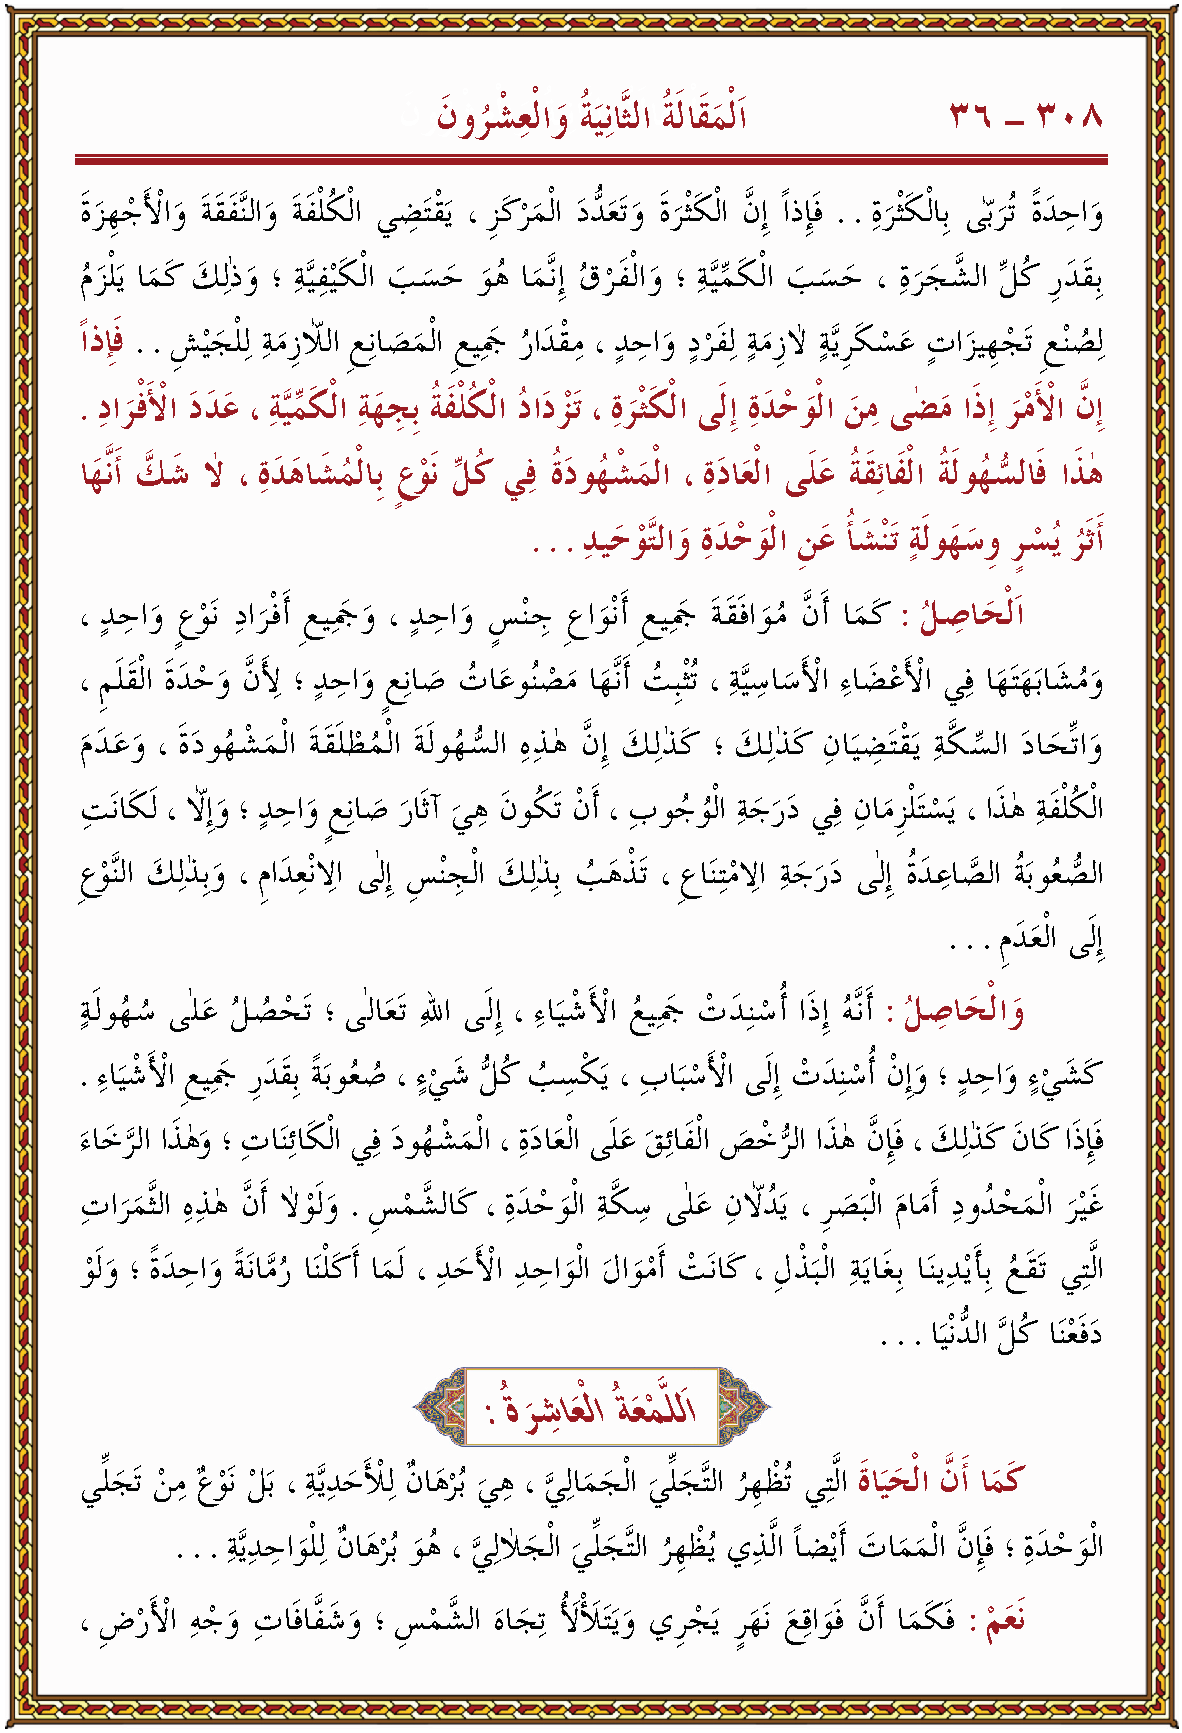 ٣٠٨ – ٣٦ اَلْمَقَالَةُ الثَّانِيَةُ وَالْعِشْرُونَ
وَاحِدَةً تُرَبّٰى بِالْكَثْرَةِ . . فَإِذاً إِنَّ الْكَثْرَةَ وَتَعَدُّدَ الْمَرْكَزِ ، يَقْتَضِي الْكُلْفَةَ وَالنَّفَقَةَ وَالْأَجْهِزَةَ
بِقَدَرِ كُلِّ الشَّجَرَةِ ، حَسَبَ الْكَمِّيَّةِ ؛ وَالْفَرْقُ إِنَّمَا هُوَ حَسَبَ الْكَيْفِيَّةِ ؛ وَذٰلِكَ كَمَا يَلْزَمُ
لِصُنْعِ تَجْهِيزَاتٍ عَسْكَرِيَّةٍ لاٰزِمَةٍ لِفَرْدٍ وَاحِدٍ ، مِقْدَارُ جَمِيعِ الْمَصَانِعِ اللاّٰزِمَةِ لِلْجَيْشِ . . فَإِذاً
إِنَّ الْأَمْرَ إِذَا مَضٰى مِنَ الْوَحْدَةِ إِلَى الْكَثْرَةِ ، تَزْدَادُ الْكُلْفَةُ بِجِهَةِ الْكَمِّيَّةِ ، عَدَدَ الْأَفْرَادِ .
هٰذَا فَالسُّهُولَةُ الْفَائِقَةُ عَلَى الْعَادَةِ ، الْمَشْهُودَةُ فِي كُلِّ نَوْعٍ بِالْمُشَاهَدَةِ ، لاٰ شَكَّ أَنَّهَا
أَثَرُ يُسْرٍ وِسَهَولَةٍ تَنْشَأُ عَنِ الْوَحْدَةِ وَالتَّوْحِيدِ . . .
اَلْحَاصِلُ : كَمَا أَنَّ مُوَافَقَةَ جَمِيعِ أَنْوَاعِ جِنْسٍ وَاحِدٍ ، وَجَمِيعِ أَفْرَادِ نَوْعٍ وَاحِدٍ ،
وَمُشَابَهَتَهَا فِي الْأَعْضَاءِ الْأَسَاسِيَّةِ ، تُثْبِتُ أَنَّهَا مَصْنُوعَاتُ صَانِعٍ وَاحِدٍ ؛ لِأَنَّ وَحْدَةَ الْقَلَمِ ،
وَاتِّحَادَ السِّكَّةِ يَقْتَضِيَانِ كَذٰلِكَ ؛ كَذٰلِكَ إِنَّ هٰذِهِ السُّهُولَةَ الْمُطْلَقَةَ الْمَشْهُودَةَ ، وَعَدَمَ
الْكُلْفَةِ هٰذَا ، يَسْتَلْزِمَانِ فِي دَرَجَةِ الْوُجُوبِ ، أَنْ تَكُونَ هِيَ آثَارَ صَانِعٍ وَاحِدٍ ؛ وَإِلاّٰ ، لَكَانَتِ
الصُّعُوبَةُ الصَّاعِدَةُ إِلٰى دَرَجَةِ الاِمْتِنَاعِ ، تَذْهَبُ بِذٰلِكَ الْجِنْسِ إِلَى الاِنْعِدَامِ ، وَبِذٰلِكَ النَّوْعِ
إِلَى الْعَدَمِ . . .
وَالْحَاصِلُ : أَنَّهُ إِذَا أُسْنِدَتْ جَمِيعُ الْأَشْيَاءِ ، إِلَى اللهِ تَعَالٰى ؛ تَحْصُلُ عَلٰى سُهُولَةٍ
كَشَيْءٍ وَاحِدٍ ؛ وَإِنْ أُسْنِدَتْ إِلَى الْأَسْبَابِ ، يَكْسِبُ كُلُّ شَيْءٍ ، صُعُوبَةً بِقَدَرِ جَمِيعِ الْأَشْيَاءِ .
فَإِذَا كَانَ كَذٰلِكَ ، فَإِنَّ هٰذَا الرُّخْصَ الْفَائِقَ عَلَى الْعَادَةِ ، الْمَشْهُودَ فِي الْكَائِنَاتِ ؛ وَهٰذَا الرَّخَاءَ
غَيْرَ الْمَحْدُودِ أَمَامَ الْبَصَرِ ، يَدُلاّٰنِ عَلٰى سِكَّةِ الْوَحْدَةِ ، كَالشَّمْسِ . وَلَوْلاٰ أَنَّ هٰذِهِ الثَّمَرَاتِ
الَّتِي تَقَعُ بِأَيْدِينَا بِغَايَةِ الْبَذْلِ ، كَانَتْ أَمْوَالَ الْوَاحِدِ الْأَحَدِ ، لَمَا أَكَلْنَا رُمَّانَةً وَاحِدَةً ؛ وَلَوْ
دَفَعْنَا كُلَّ الدُّنْيَا . . .
اَللَّمْعَةُ الْعَاشِرَةُ :
كَمَا أَنَّ الْحَيَاةَ الَّتِي تُظْهِرُ التَّجَلِّيَ الْجَمَالِيَّ ، هِيَ بُرْهَانٌ لِلْأَحَدِيَّةِ ، بَلْ نَوْعٌ مِنْ تَجَلِّي
الْوَحْدَةِ ؛ فَإِنَّ الْمَمَاتَ أَيْضاً الَّذِي يُظْهِرُ التَّجَلِّيَ الْجَلاٰلِيَّ ، هُوَ بُرْهَانٌ لِلْوَاحِدِيَّةِ . . .
نَعَمْ : فَكَمَا أَنَّ فَوَاقِعَ نَهَرٍ يَجْرِي وَيَتَلَأْلَأُ تِجَاهَ الشَّمْسِ ؛ وَشَفَّافَاتِ وَجْهِ الْأَرْضِ ،